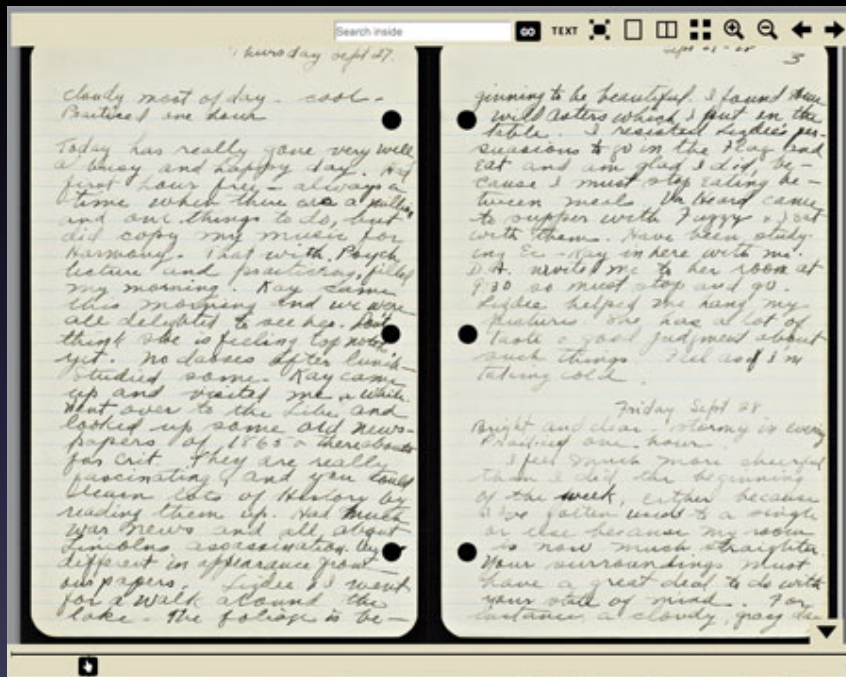 Search inside
GO
TEXT
Thursday Sept 27.
Cloudy most of day - cool -
Practiced one hour
Today has really gone very well
a busy and happy day. Had
first hour free - always a
time when there are a million
and one things to do, but
did copy my music for
Harmony. That with Psych
lecture and practicing, filled
my morning. Kay came
this morning and we were
all delighted to see her. Don't
think she is feeling top notch
yet. No classes after lunch -
Studied some. Kay came
up and visited me a while.
Went over to the Libe and
looked up some old news-
papers of 1865 & thereabouts
for Crit. They are really
fascinating and you could
learn lots of History by
reading them up. Had much
war news and all about
Lincolns assasination.
different in appearance from
our papers. Lizdee & I went
for a walk around the
lake. The foliage is be-
3
ginning to be beautiful. I found some
wild asters which I put in the
table. I resisted Lizdee's per-
suasions to go in the Flag and
Eat and am glad I did, be-
cause I must stop eating be-
tween meals. Dr Heard came
to supper with Fuzzy & I sat
with them. Have been study-
ing Ec - Kay in here with me.
D.A. invited me to her room at
9:30 so must stop and go.
Lizdee helped me hang my
pictures. She has a lot of
taste & good judgment about
such things. Feel as if I'm
taking cold.
Friday Sept 28
Bright and clear - stormy in evening
Practiced one hour.
I feel much more cheerful
than I did the beginning
of the week, either because
I've gotten used to a single
or else because my room
is now much straighter.
Your surroundings must
have a great deal to do with
your state of mind. For
instance, a cloudy, gray